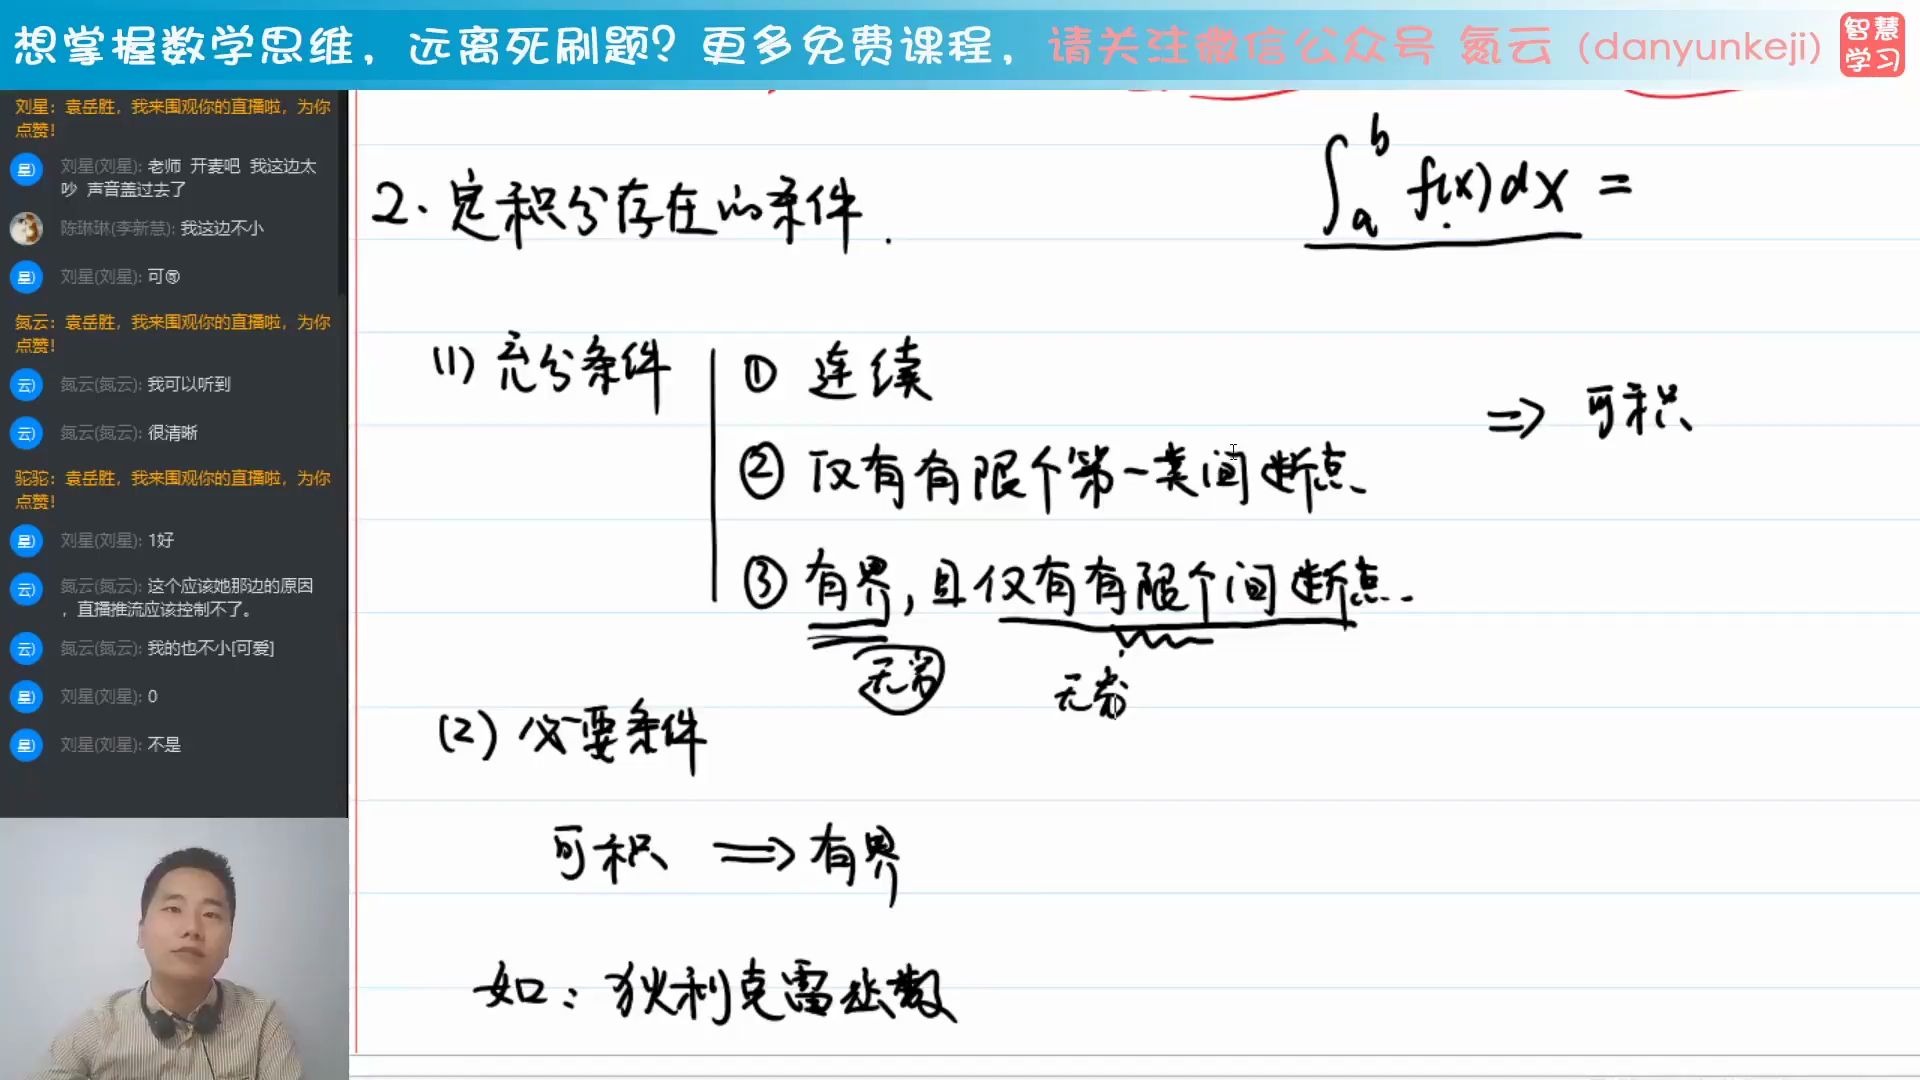 想掌握数学思维，远离死刷题？更多免费课程，请关注微信公众号 氮云（danyunkeji）
智慧
学习
刘星：袁岳胜，我来围观你的直播啦，为你
点赞！
星)
刘星(刘星): 老师 开麦吧 我这边太
吵 声音盖过去了
陈琳琳(李新慧): 我这边不小
星)
刘星(刘星): 可
氮云：袁岳胜，我来围观你的直播啦，为你
点赞！
云)
氮云(氮云): 我可以听到
云)
氮云(氮云): 很清晰
驼驼：袁岳胜，我来围观你的直播啦，为你
点赞！
星)
刘星(刘星): 1好
云)
氮云(氮云): 这个应该她那边的原因
，直播推流应该控制不了。
云)
氮云(氮云): 我的也不小[可爱]
星)
刘星(刘星): 0
星)
刘星(刘星): 不是
2. 定积分存在的条件.
∫_a^b f(x)dx =
(1) 充分条件
① 连续
② 仅有有限个第一类间断点.
③ 有界，且仅有有限个间断点.
⇒ 可积
无穷
无穷
(2) 必要条件
可积 ⇒ 有界
如：狄利克雷函数